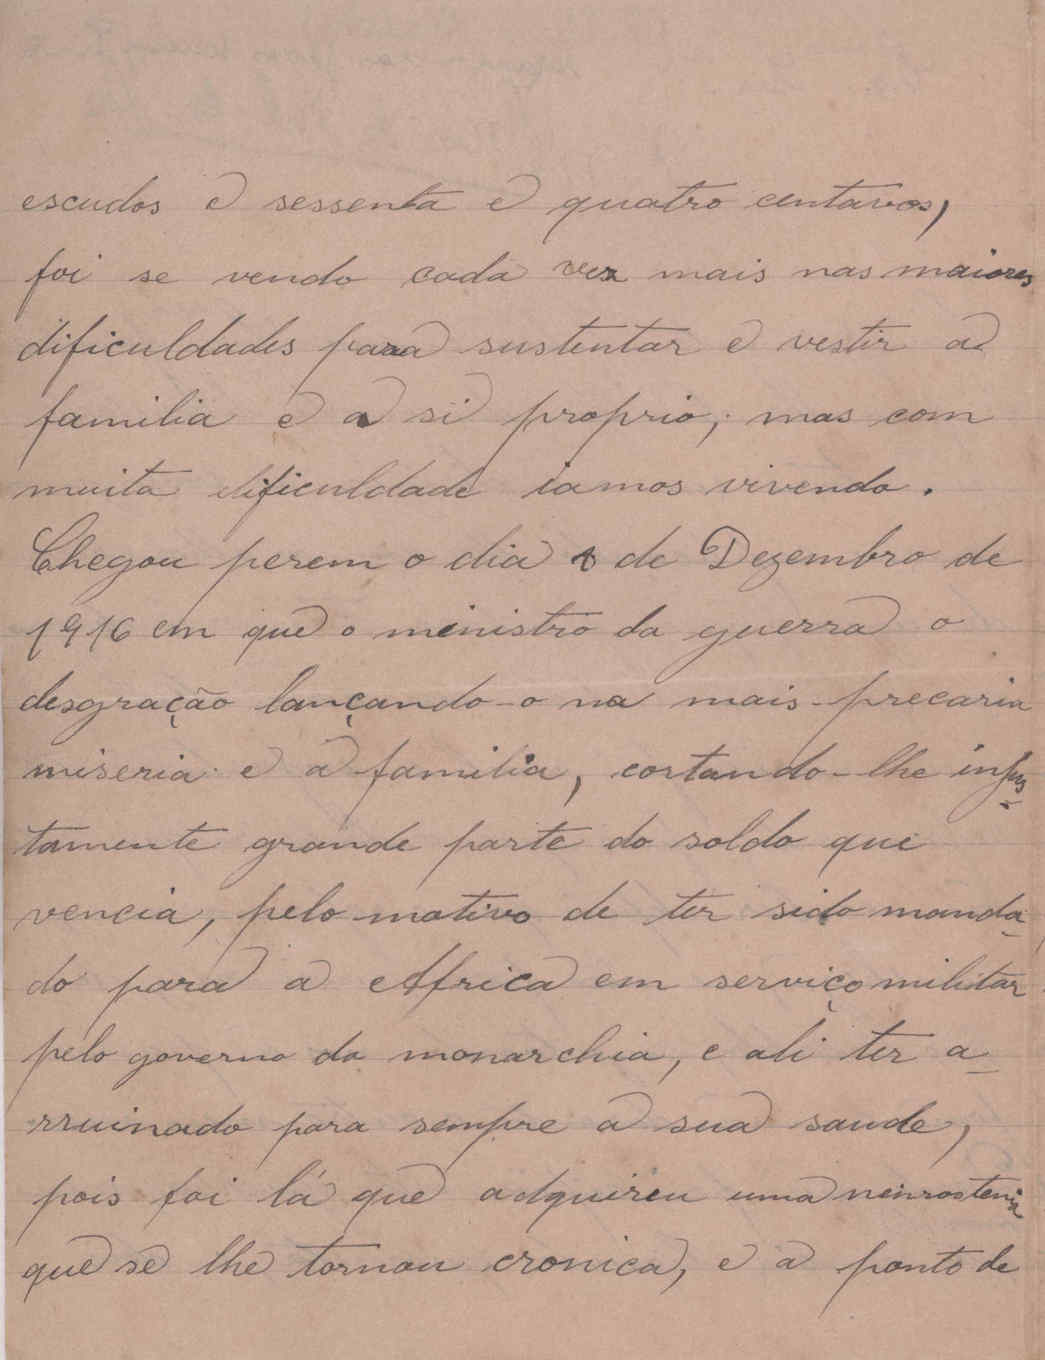 escudos e sessenta e quatro centavos,
foi se vendo cada vez mais nas maiores
dificuldades para sustentar e vestir a
familia e a si proprio; mas com
muita dificuldade iamos vivendo.
Chegou perem o dia de Dezembro de
1916 em que o ministro da guerra o
desgração lançando-o na mais precaria
miseria e a familia, cortando-lhe injus-
tamente grande parte do soldo que
vencia, pelo motivo de ter sido manda-
do para a Africa em serviço militar
pelo governo da monarchia, e ali ter a-
rruinado para sempre a sua saude,
pois foi lá que adquireu uma neurostenia
que se lhe tornou cronica, e a ponto de